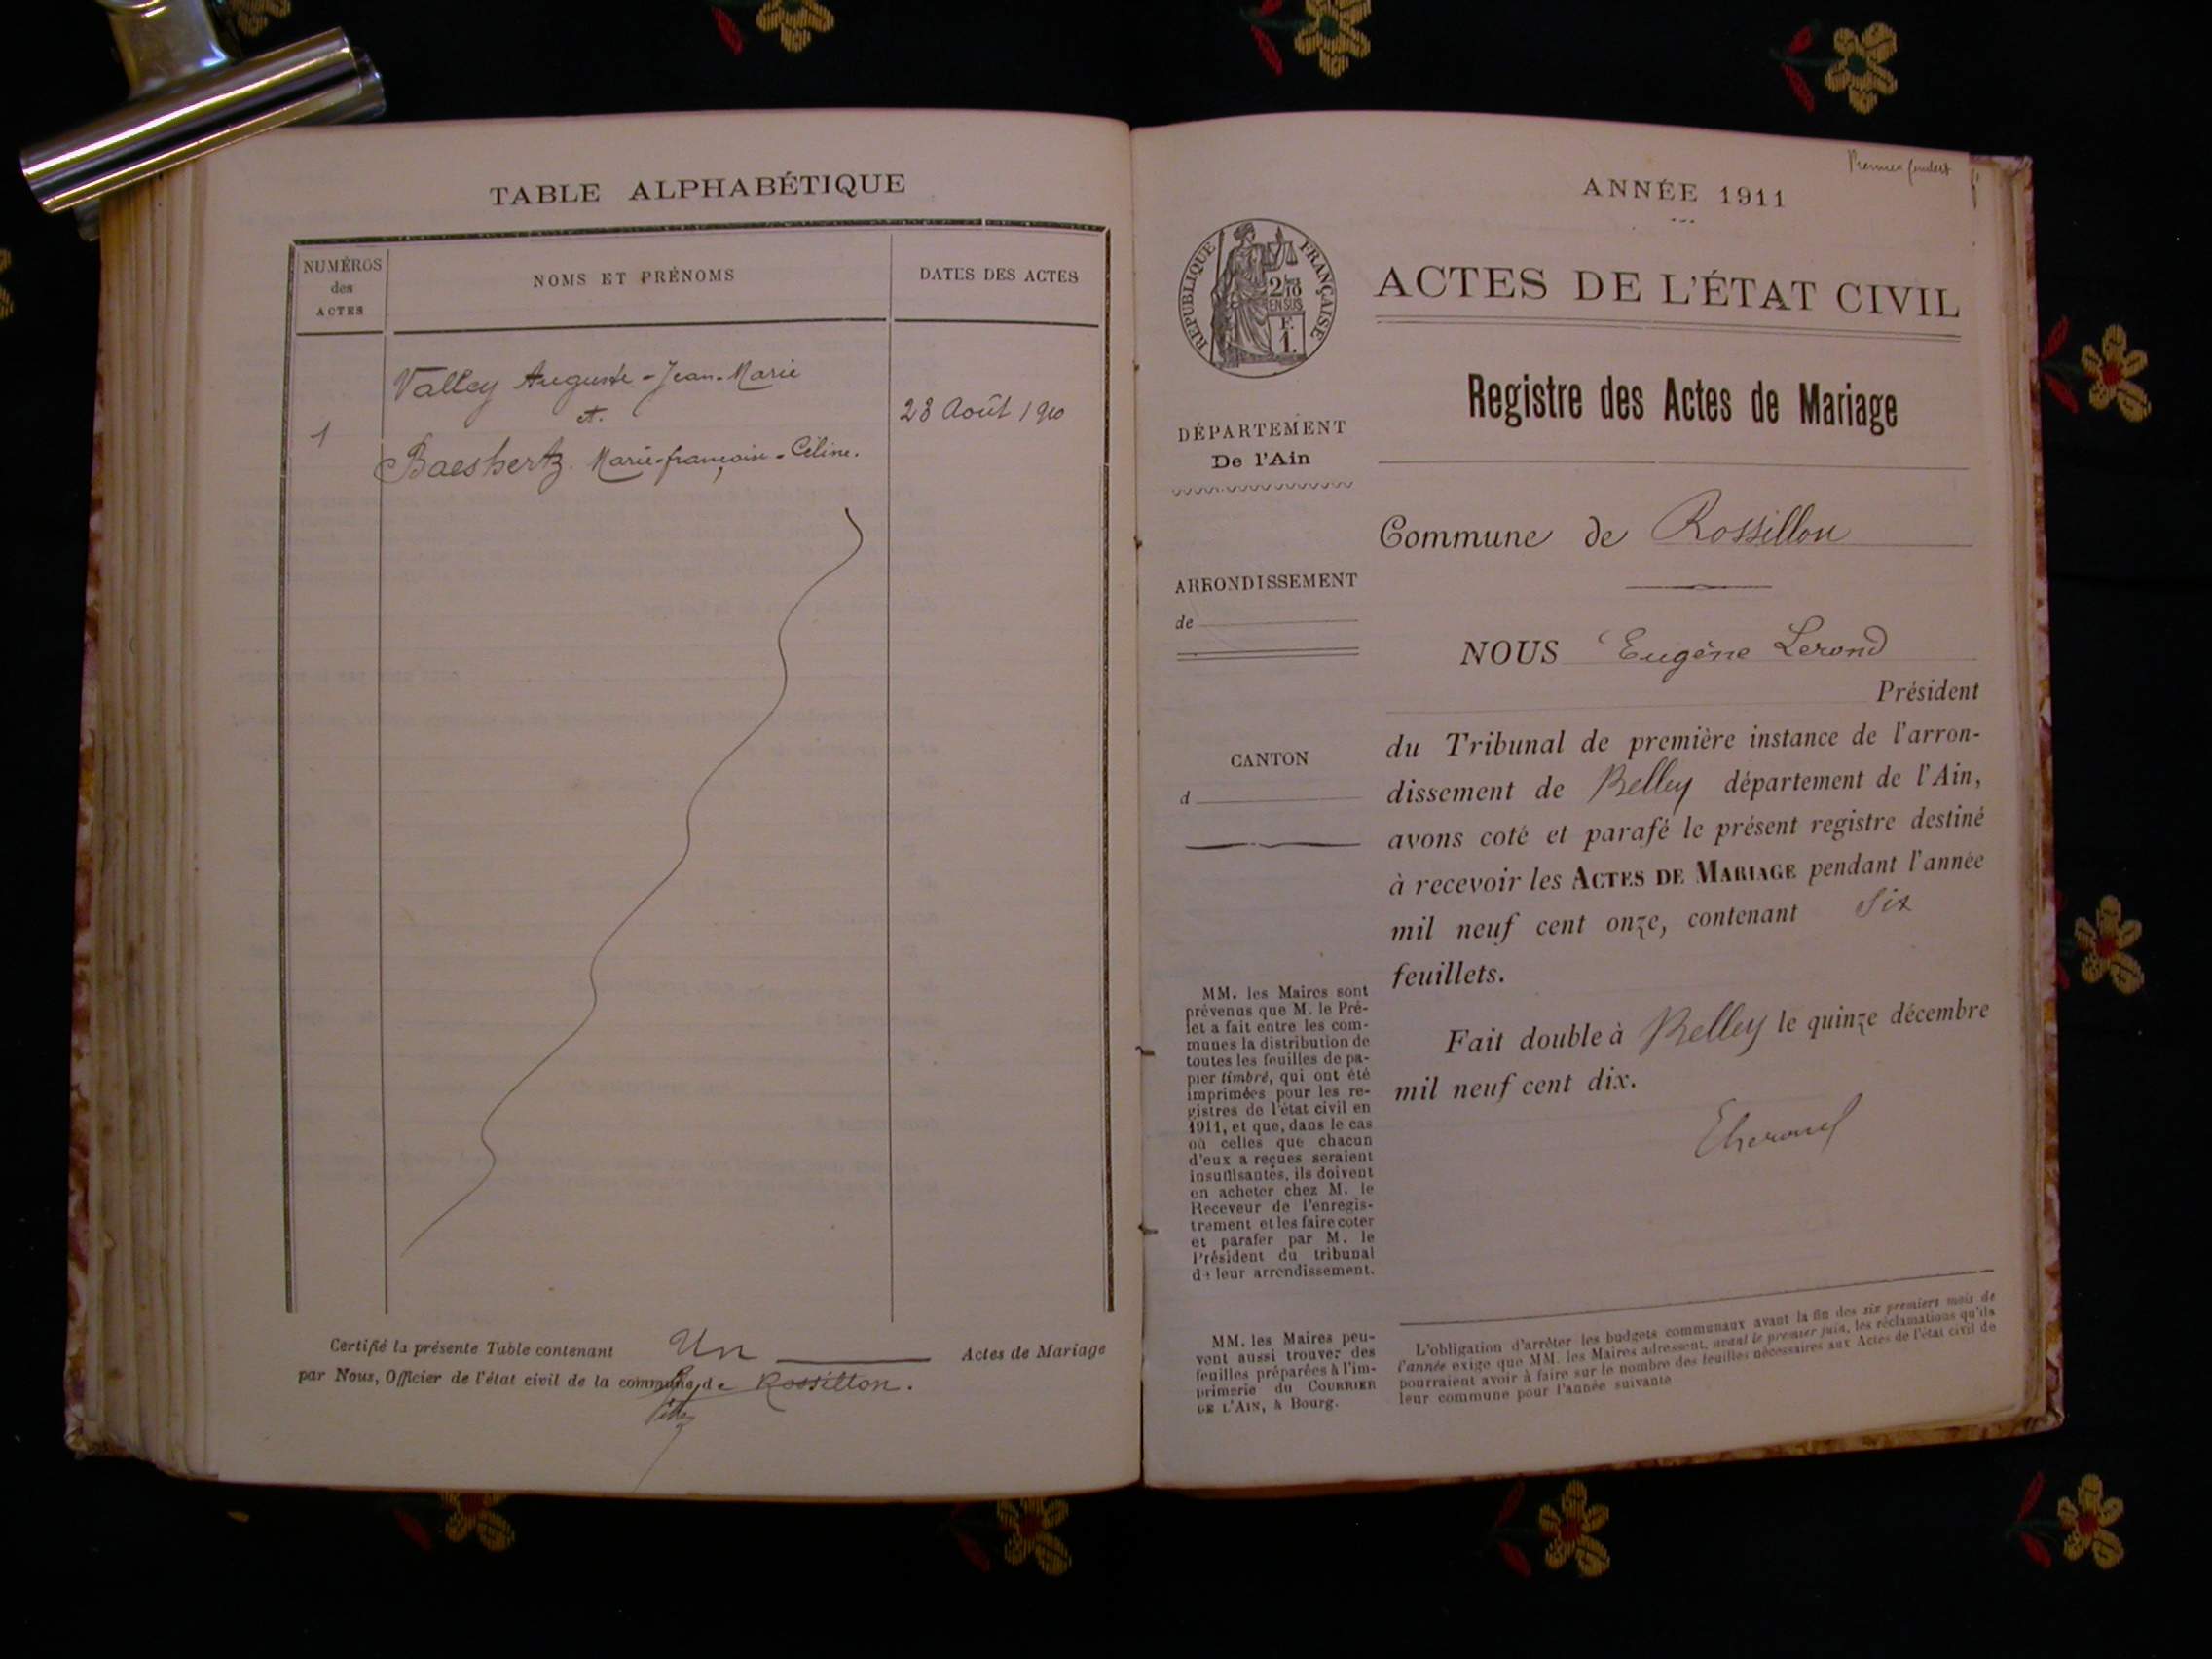 TABLE ALPHABÉTIQUE
NUMÉROS
des
ACTES
NOMS ET PRÉNOMS
DATES DES ACTES
1
Valley Auguste-Jean-Marie
et
Baeshertz Marie-françoise-Céline.
28 Août 1910
Certifié la présente Table contenant Un Actes de Mariage
par Nous, Officier de l'état civil de la commune de Rossillon.
Premier feuillet
ANNÉE 1911
RÉPUBLIQUE FRANÇAISE
2/10
EN SUS
F.
1.
ACTES DE L'ÉTAT CIVIL
Registre des Actes de Mariage
DÉPARTEMENT
De l'Ain
ARRONDISSEMENT
de
CANTON
d
MM. les Maires sont
prévenus que M. le Pré-
fet a fait entre les com-
munes la distribution de
toutes les feuilles de pa-
pier timbré, qui ont été
imprimées pour les re-
gistres de l'état civil en
1911, et que, dans le cas
où celles que chacun
d'eux a reçues seraient
insuffisantes, ils doivent
en acheter chez M. le
Receveur de l'enregis-
trement et les faire coter
et parafer par M. le
Président du tribunal
de leur arrondissement.
MM. les Maires peu-
vent aussi trouver des
feuilles préparées à l'im-
primerie du COURRIER
DE L'AIN, à Bourg.
Commune de Rossillon
NOUS Eugène Lerond
Président
du Tribunal de première instance de l'arron-
dissement de Belley département de l'Ain,
avons coté et parafé le présent registre destiné
à recevoir les ACTES DE MARIAGE pendant l'année
mil neuf cent onze, contenant Six
feuillets.
Fait double à Belley le quinze décembre
mil neuf cent dix.
L'obligation d'arrêter les budgets communaux avant la fin des six premiers mois de
l'année exige que MM. les Maires adressent, avant le premier juin, les réclamations qu'ils
pourraient avoir à faire sur le nombre des feuilles nécessaires aux Actes de l'état civil de
leur commune pour l'année suivante